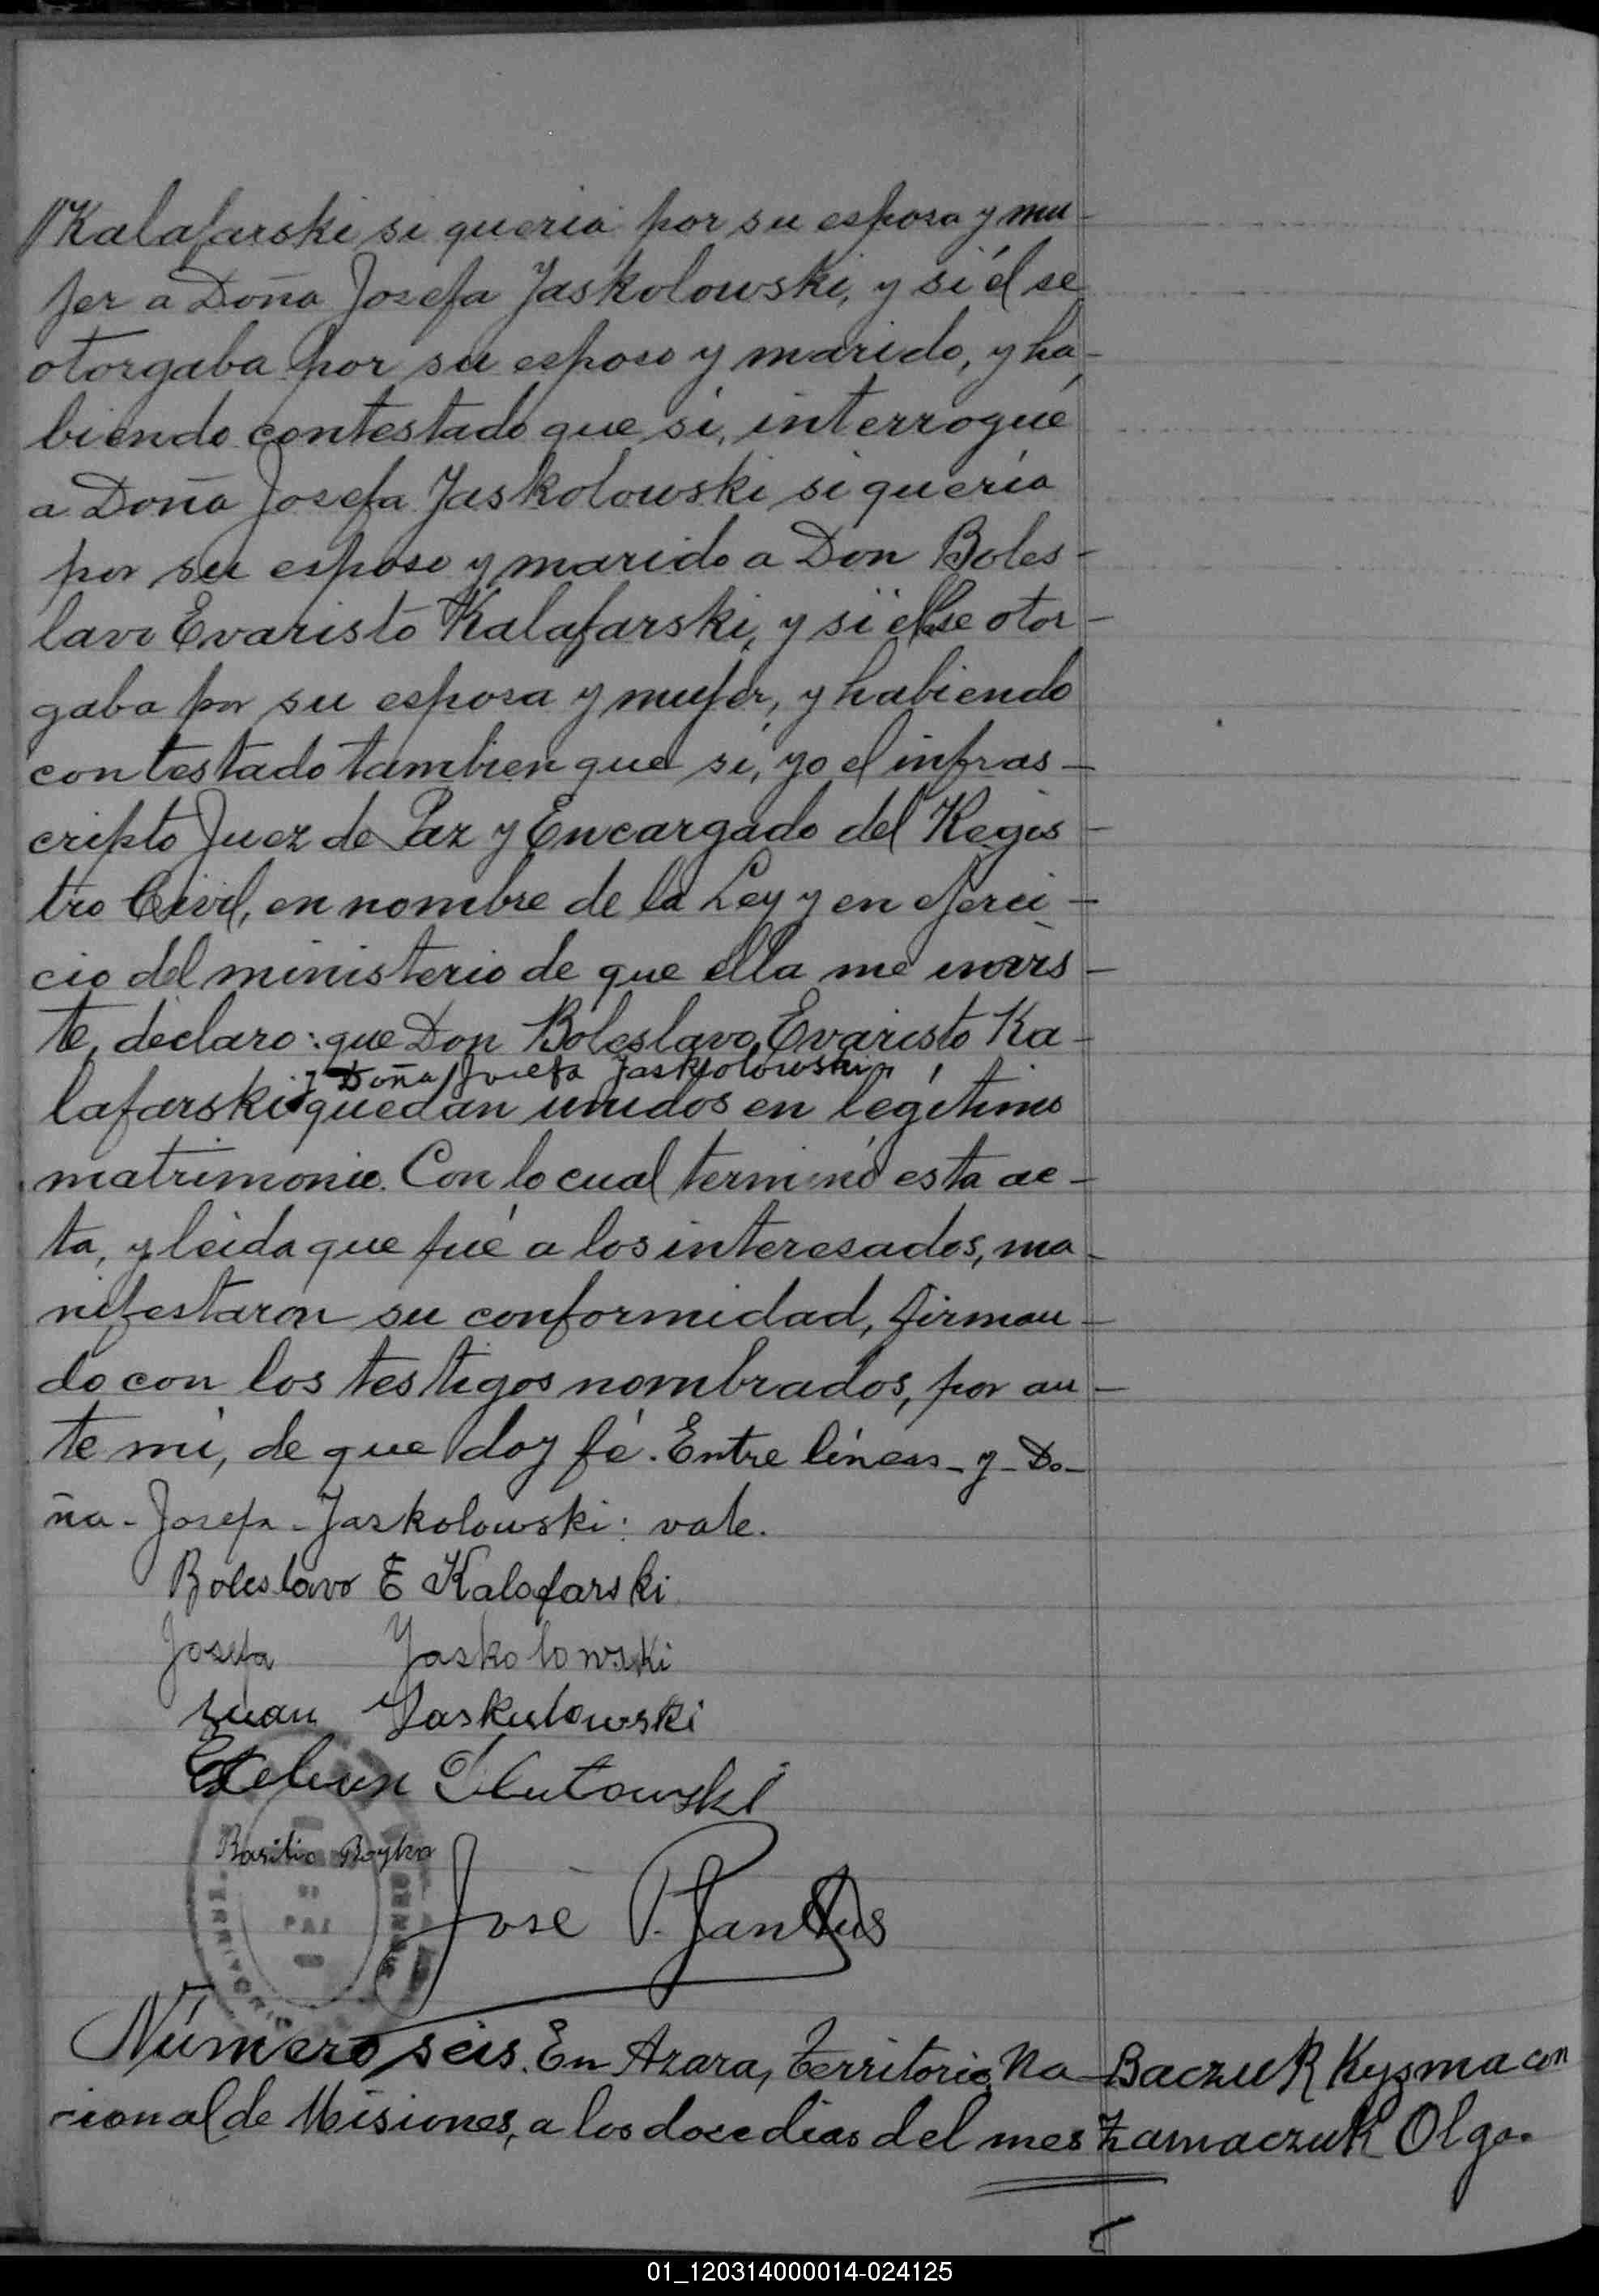 //Kalafarski si queria por su esposa y mu-
jer a Doña Josefa Jaskolowski, y si él se
otorgaba por su esposo y marido, y ha-
biendo contestado que si, interrogué
a Doña Josefa Jaskolowski si quería
por su esposo y marido a Don Boles-
lavo Evaristo Kalafarski, y si ella se otor-
gaba por su esposa y mujer, y habiendo
contestado tambien que si, yo el infras-
cripto Juez de Paz y Encargado del Regis-
tro Civil, en nombre de la Ley y en ejerci-
cio del ministerio de que ella me invis-
te, declaro: que Don Boleslavo Evaristo Ka-
y Doña Josefa Jaskolowski
lafarski quedan unidos en legítimo
matrimonio. Con lo cual terminó esta ac-
ta, y leida que fué a los interesados, ma-
nifestaron su conformidad, firman-
do con los testigos nombrados, por an-
te mi, de que doy fé. Entre líneas - y - Do-
ña - Josefa - Jaskolowski: vale.
Boleslavo E Kalafarski
Josefa Jaskolowski
Juan Jaskulowski
Esteban
Basilio Boyko
José P.
Número seis. En Azara, Territorio Na-
cional de Misiones, a los doce dias del mes
Baczuk Kyzma con
Zamaczuk Olga.
01_120314000014-024125